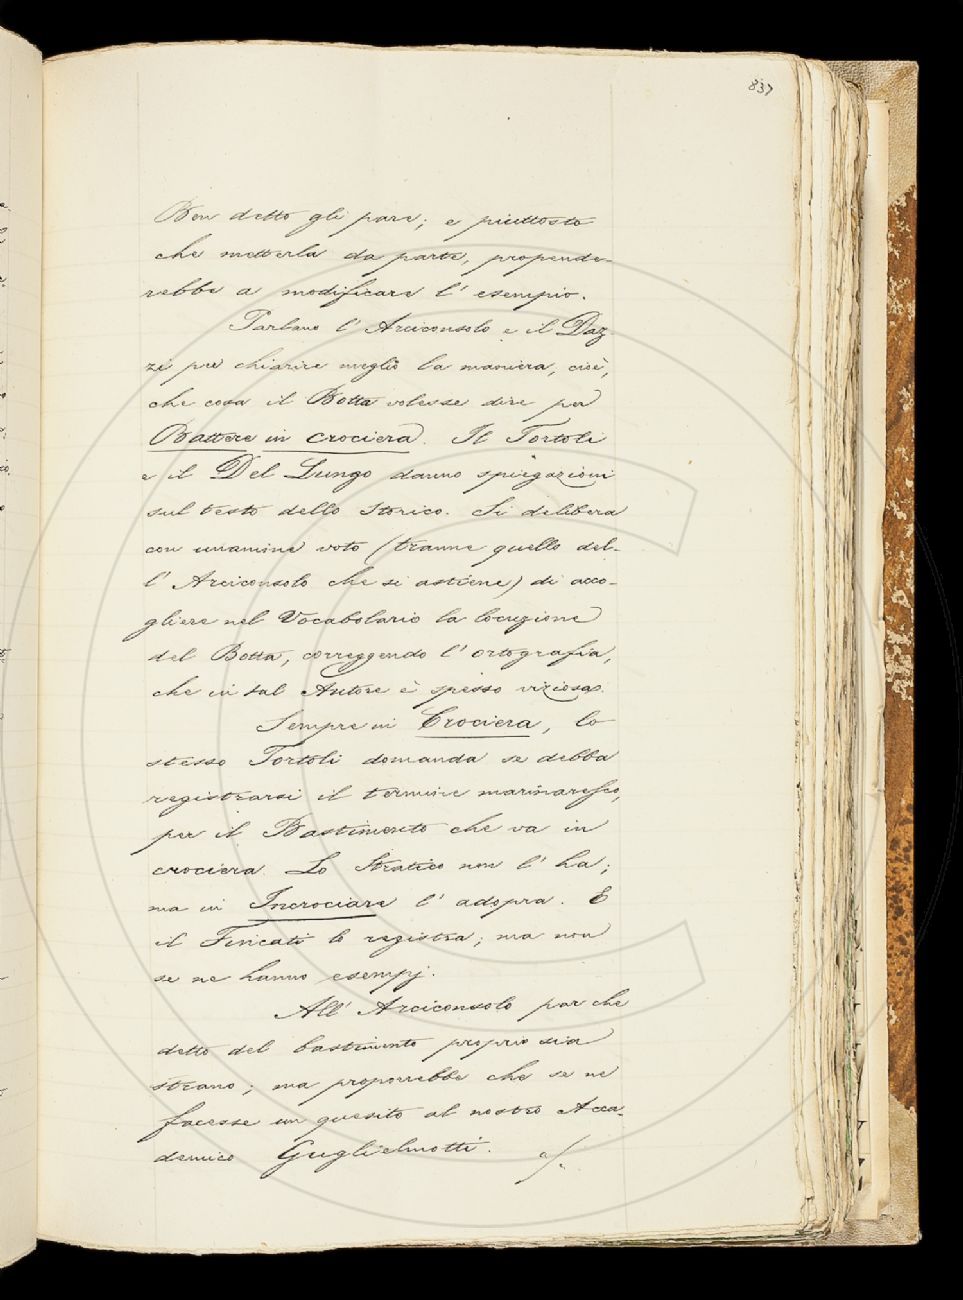 837
Ben detto gli pare; e piuttosto
che metterla da parte, propende-
rebbe a modificare l' esempio.
Parlano l' Arciconsolo e il Daz-
zi per chiarire meglio la maniera, cioè,
che cosa il Botta volesse dire per
Battere in crociera. Il Tortoli
e il Del Lungo danno spiegazioni
sul testo dello Storico. Si delibera
con unanime voto (tranne quello del-
l' Arciconsolo che si astiene) di acco-
gliere nel Vocabolario la locuzione
del Botta, correggendo l' ortografia,
che in tal Autore è spesso viziosa.
Sempre in Crociera, lo
stesso Tortoli domanda se debba
registrarsi il termine marinaresco,
per il Bastimento che va in
crociera. Lo Stratico non l' ha;
ma in Incrociare l' adopra. E
il Fincati lo registra; ma non
se ne hanno esempj.
All' Arciconsolo par che
detto del bastimento proprio sia
strano; ma proporrebbe che se ne
facesse un quesito al nostro Acca-
demico Guglielmotti.